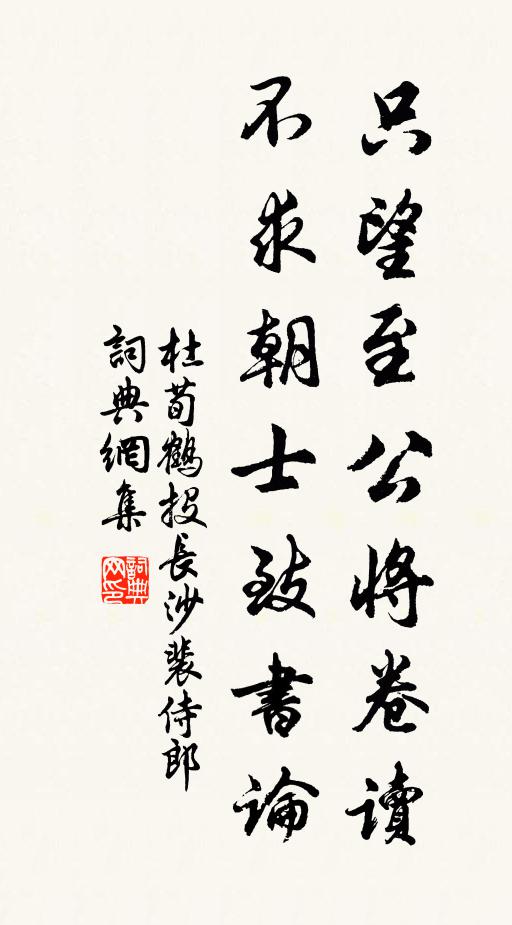 只望至公將卷讀
不求朝士致書論
杜荀鶴投長沙裴侍郎
詞典網集
詞典
网印